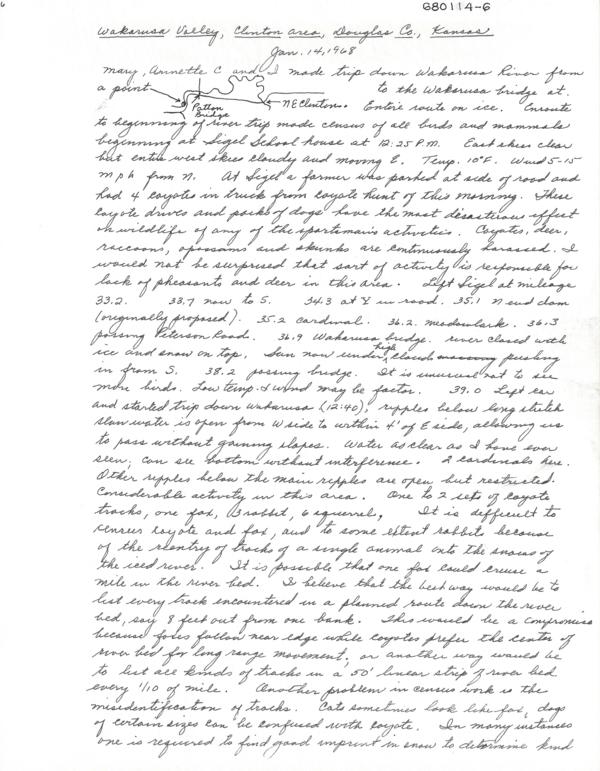 680114-6
Wakarusa Valley, Clinton area, Douglas Co., Kansas
Jan. 14, 1968
Mary, Annette C and I made trip down Wakarusa River from
a point to the Wakarusa bridge at
Patton
Bridge
N E Clinton. Entire route on ice. Enroute
to beginning of river trip made census of all birds and mammals
beginning at Sigel School house at 12:25 P.M. East skies clear
but entire west skies cloudy and moving E. Temp. 10°F. Wind 5-15
mph from N. At Sigel a farmer was parked at side of road and
had 4 coyotes in truck from coyote hunt of this morning. These
coyote drives and packs of dogs have the most desasterous effect
on wildlife of any of the sportsman's activities. Coyotes, deer,
raccoons, opossums and skunks are continuously harassed. I
would not be surprised that sort of activity is responsible for
lack of pheasants and deer in this area. Left Sigel at mileage
33.2. 33.7 now to S. 34.3 at Y in road. 35.1 N end dam
(originally proposed). 35.2 cardinal. 36.2. meadowlark. 36.3
passing Peterson Road. 36.9 Wakarusa bridge. river closed with
ice and snow on top. Sun now under high clouds pushing
in from S. 38.2 passing bridge. It is unusual not to see
more birds. Low temp. & wind may be factor. 39.0 Left car
and started trip down Wakarusa (12:40), ripples below long stretch
slow water is open from W side to within 4' of E side, allowing us
to pass without gaining slopes. Water as clear as I have ever
seen; can see bottom without interference. 2 cardinals here.
Other ripples below the main ripples are open but restricted.
Considerable activity in this area. One to 2 sets of coyote
tracks, one fox, 3 rabbit, 6 squirrel. It is defficult to
census coyote and fox, and to some extent rabbits because
of the reentry of tracks of a single animal onto the snows of
the iced river. It is possible that one fox could cruise a
mile in the river bed. I believe that the best way would be to
list every track encountered in a planned route down the river
bed, say 8 feet out from one bank. This would be a compromise
because foxes follow near edge while coyotes prefer the center of
river bed for long range movement, or another way would be
to list all kinds of tracks in a 50' linear strip of river bed
every 1/10 of mile. Another problem in census work is the
misidentification of tracks. Cats sometimes look like fox, dogs
of certain sizes can be confused with coyote. In many instances
one is required to find good imprint in snow to determine kind